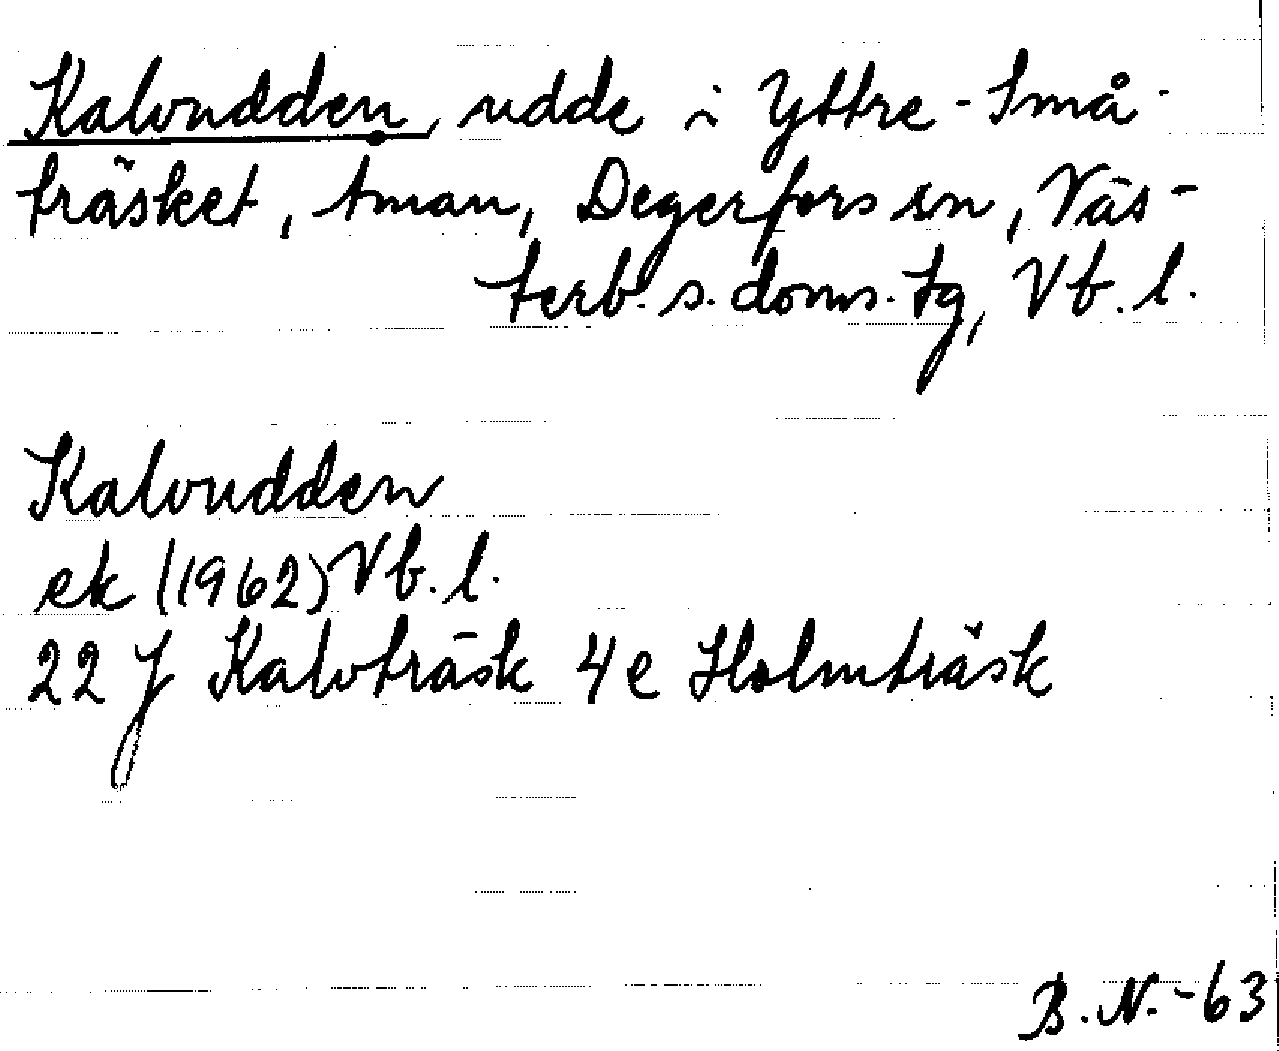 Kalvudden, udde i Yttre-Små-
träsket, Åman, Degerfors sn, Väs-
terb. s. doms. tg, Vb. l.
Kalvudden
ek (1962) Vb. l.
22 J Kalvträsk 4 e Holmträsk
B. N. -63